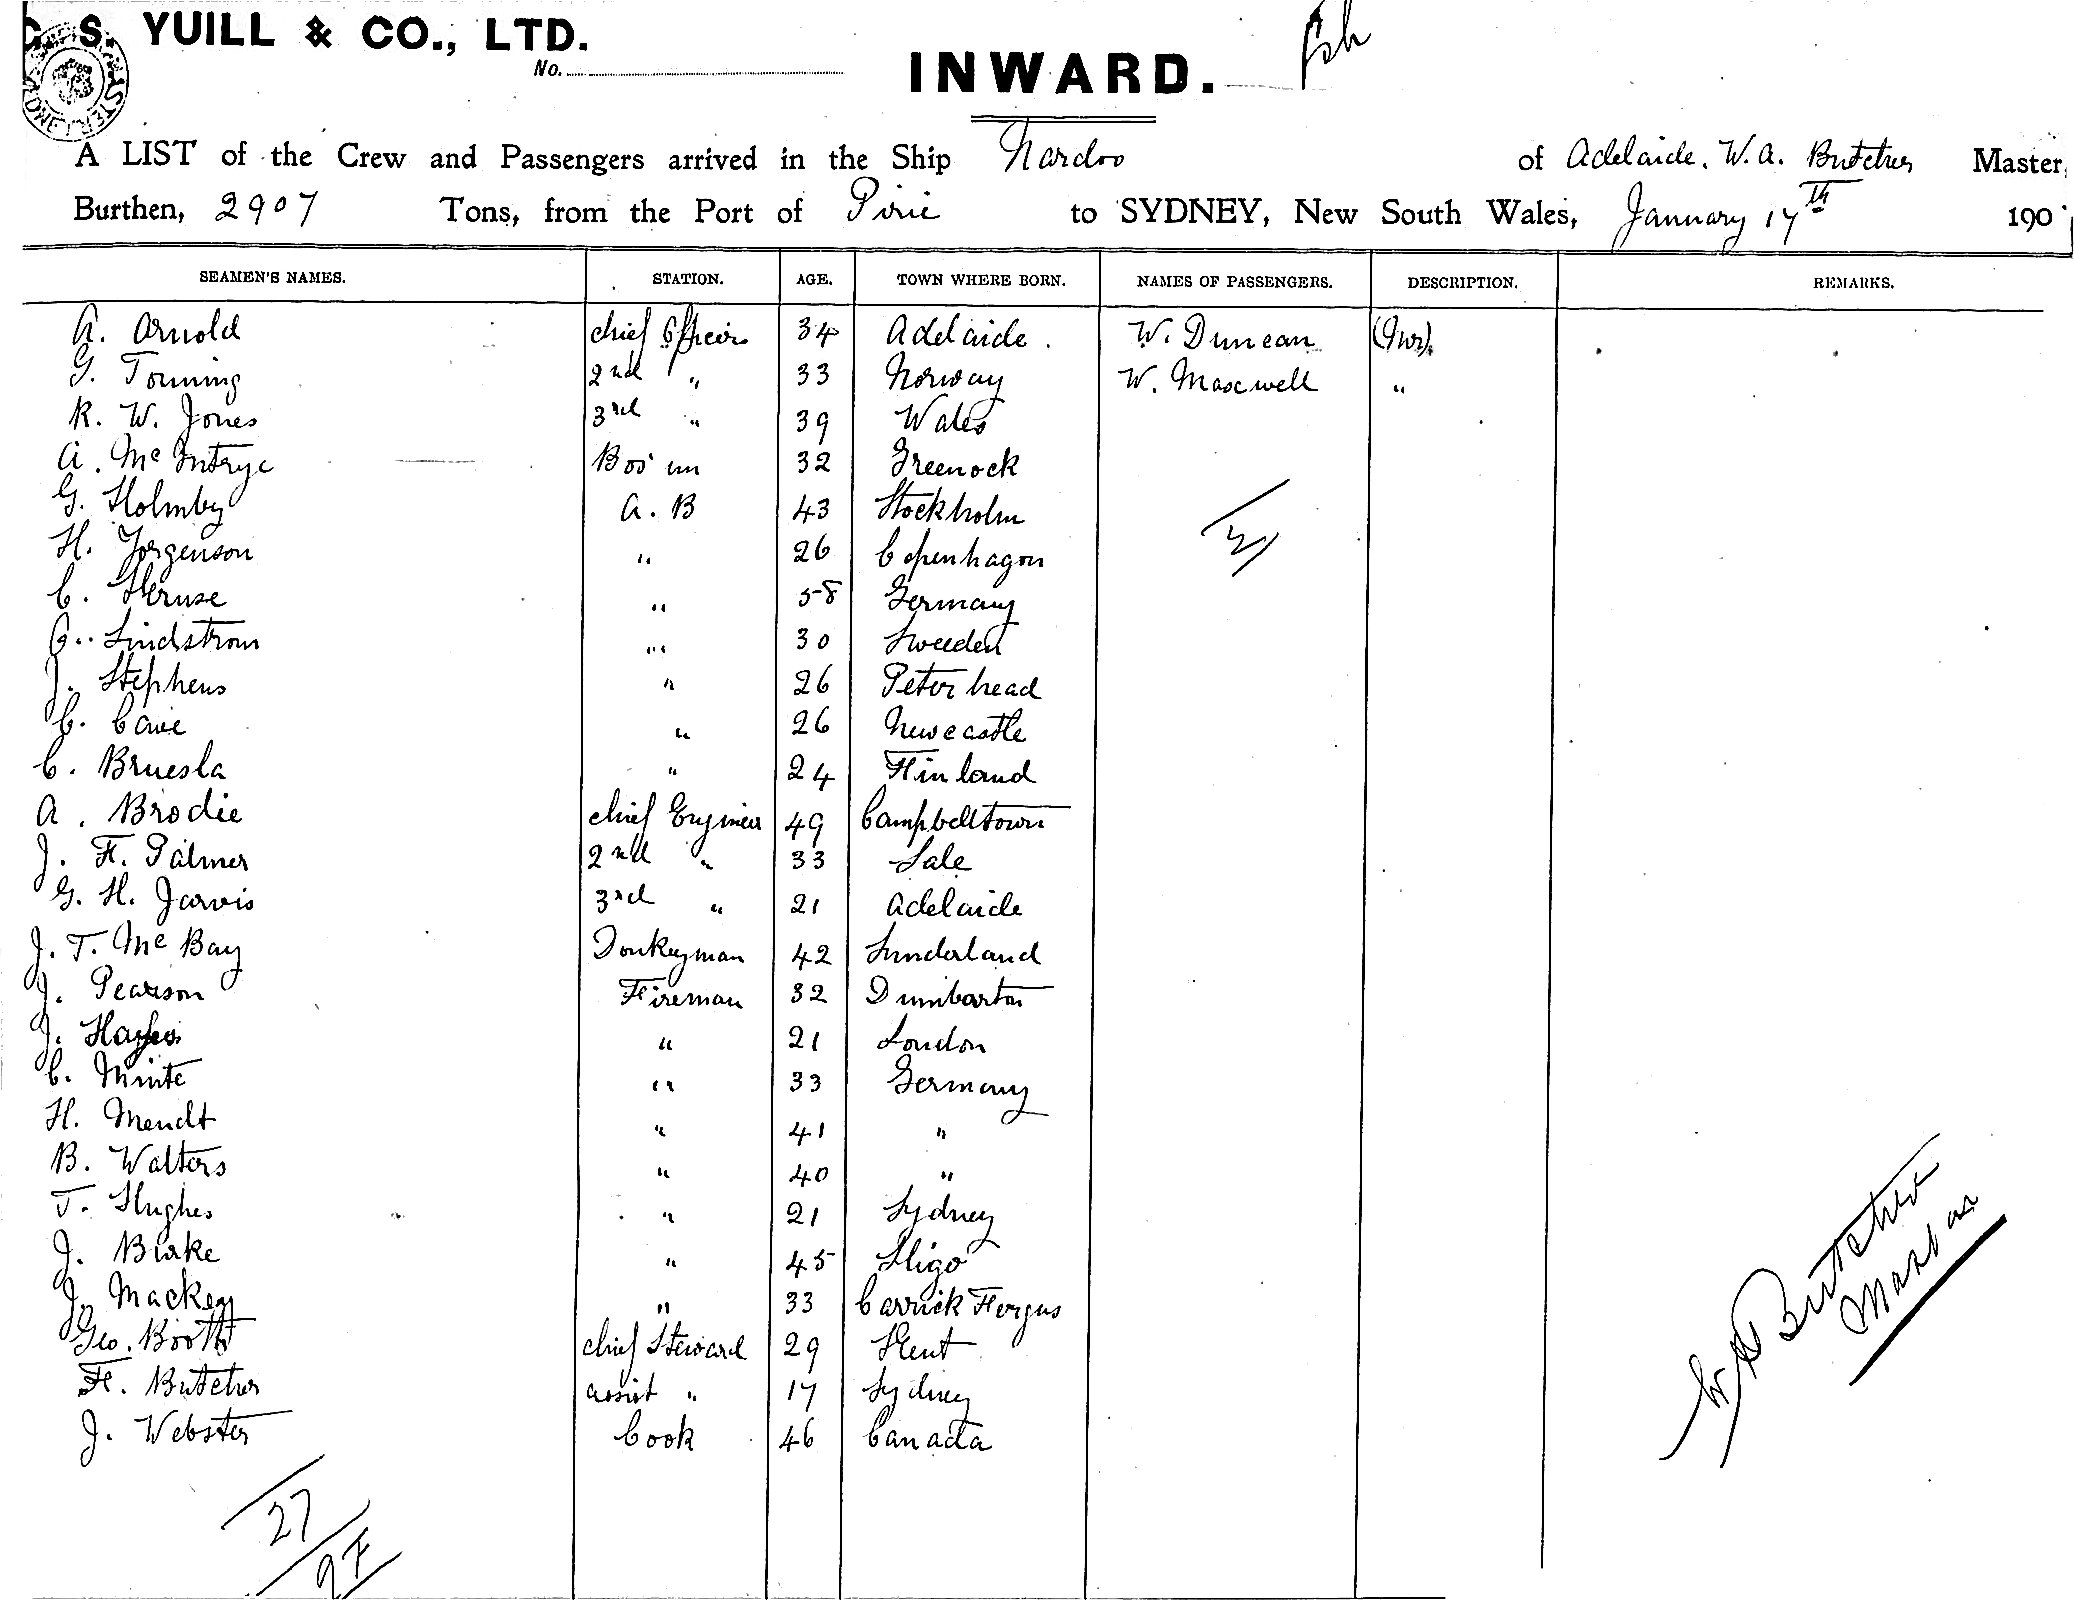 G. S. YUILL & CO., LTD.
No.
INWARD.
A LIST of the Crew and Passengers arrived in the Ship Nardoo of Adelaide. W. A. Butcher Master,
Burthen, 2907 Tons, from the Port of Pirie to SYDNEY, New South Wales, January 17th 190
SEAMEN'S NAMES. STATION. AGE. TOWN WHERE BORN. NAMES OF PASSENGERS. DESCRIPTION. REMARKS.
A. Arnold chief Officer 34 Adelaide. W. Duncan
G. Tonning 2nd " 33 Norway W. Maxwell "
R. W. Jones 3rd " 39 Wales
A. McIntrye Bos'un 32 Greenock
G. Holmby A. B 43 Stockholm
H. Jorgenson " 26 Copenhagen
C. Kruse " 58 Germany
Lindstrom " 30 Sweeden
J. Stephens " 26 Peterhead
C. Cave " 26 Newcastle
C. Bruesla " 24 Finland
A. Brodie chief Engineer 49 Campbelltown
J. F. Palmer 2nd " 33 Sale
G. H. Jarvis 3rd " 21 Adelaide
J. T. McBay Donkeyman 42 Sunderland
J. Pearson Fireman 32 Dumbarton
J. Hayes " 21 London
C. Minte " 33 Germany
H. Mendt " 41 "
B. Walters " 40 "
T. Hughes " 21 Sydney
J. Blake " 45 Sligo
J. Mackey " 33 Carrick Fergus
Geo. Booth chief Steward 29 Kent
F. Butcher assist " 17 Sydney
J. Webster Cook 46 Canada
27
W A Butcher
Master